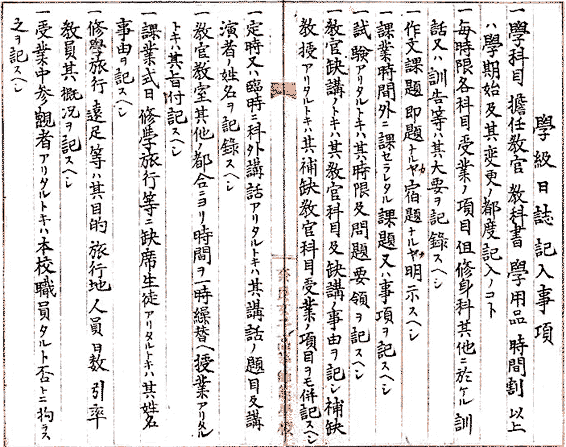 學級日誌記入事項
一學科目 擔任教官 教科書 學用品 時間割 以上
ハ學期始及其變更ノ都度記入ノコト
一每時限各科目受業ノ項目但修身科其他ニ於ケル訓
話又ハ訓告等ハ其大要ヲ記錄スヘシ
一作文課題即題ナルヤ宿題ナルヤヲ明示スヘシ
一課業時間外ニ課セラレタル課題又ハ事項ヲ記スヘシ
一試驗アリタルトキハ其時限及問題ノ要領ヲ記スヘシ
一教官缺講ノトキハ其教官科目及缺講ノ事由ヲ記シ補缺
教授アリタルトキハ其補缺教官科目受業ノ項目ヲモ併記スヘシ
一定時又ハ臨時ニ科外講話アリタルトキハ其講話ノ題目及講
演者ノ姓名ヲ記錄スヘシ
一教官教室其他ノ都合ニヨリ時間ヲ一時繰替ヘ授業アリタル
トキハ其旨付記スヘシ
一課業式日修學旅行等ニ缺席生徒アリタルトキハ其姓名
事由ヲ記スヘシ
一修學旅行遠足等ハ其目的 旅行地 人員 日數 引率
教員其概況ヲ記スヘシ
一受業中參觀者アリタルトキハ本校職員タルト否トニ拘ラス
之ヲ記スヘシ